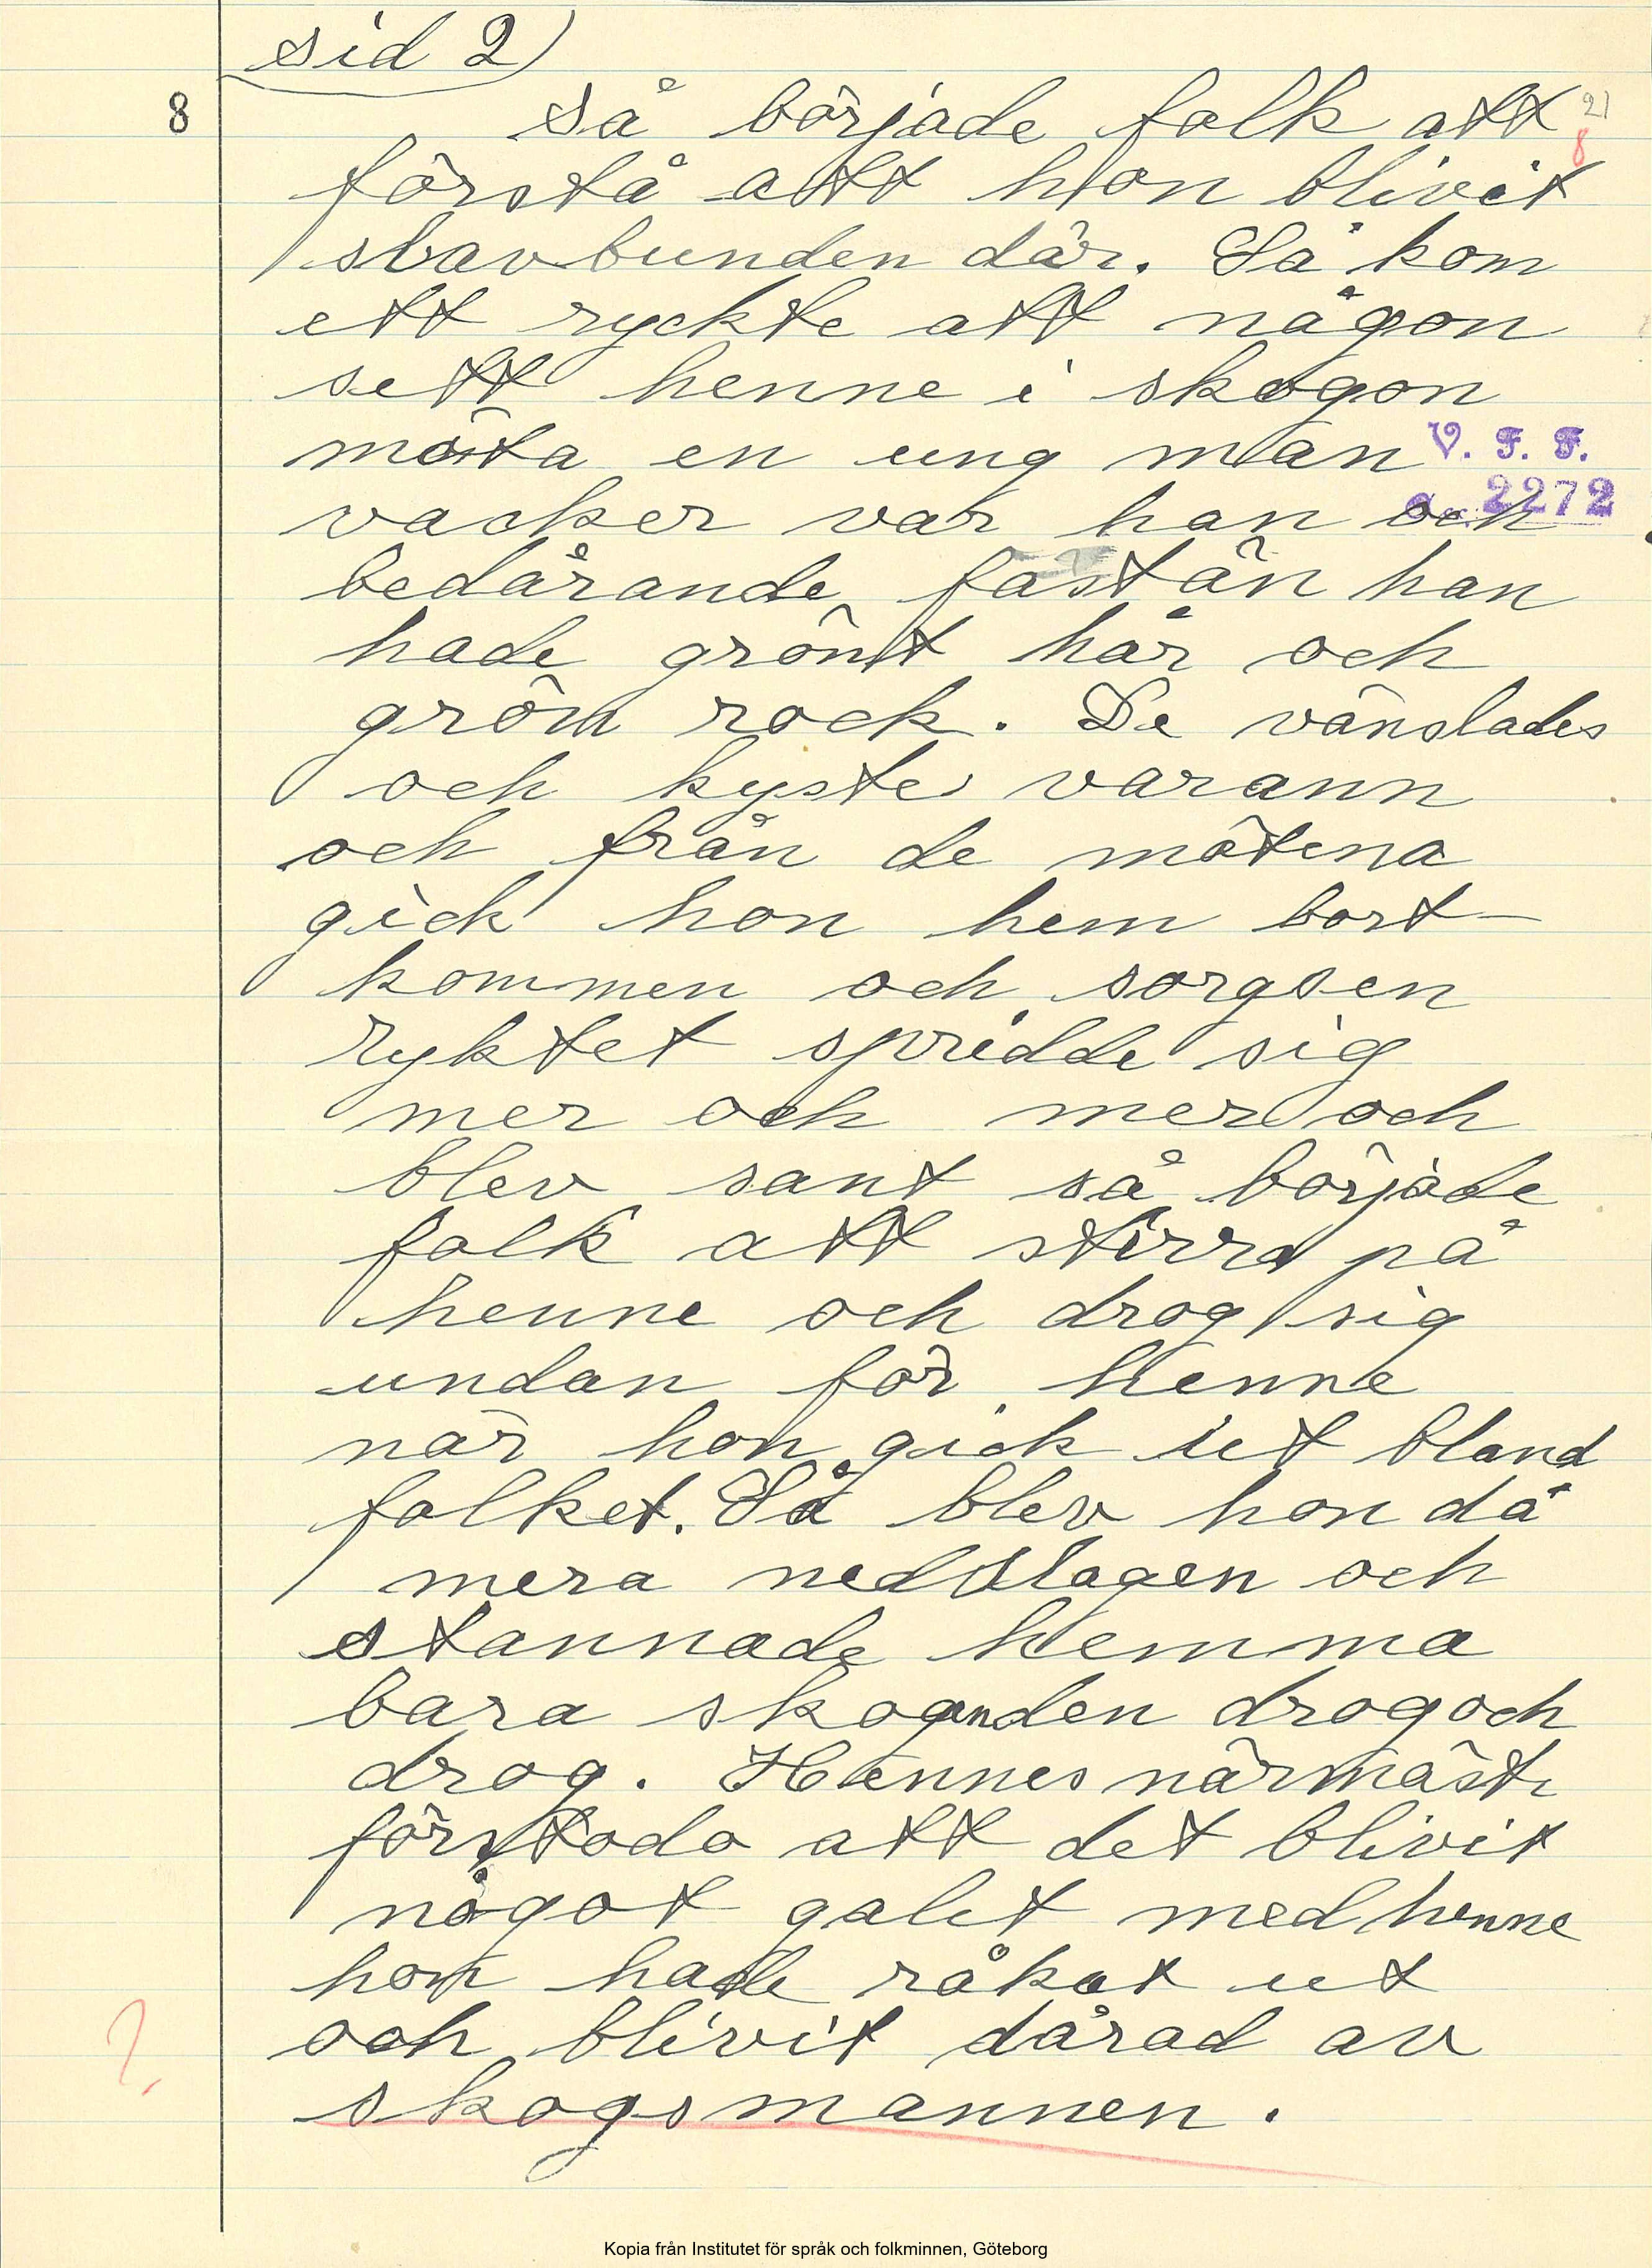 sid 2)
8
Så började folk att
2)
8
förstå att hon blivit
slavbunden där. Så kom
ett ryckte att någon
sett henne i skogon
möta en ung man
V. F. F.
vacker var han och
2272
bedårande fastän han
hade grönt hår och
gröm rock. De vänslades
och kyste varann
och från de mötena
gick hon hem bort-
kommen och sorgsen
Ryktet spridde sig
mer och mer och
blev sant så började
folk att stirra på
henne och drog sig
undan för henne
när hon gick ut bland
folket. Så blev hon då
mera nedslagen och
stannade hemma
bara skogen den drog och
drog. Hennes närmäste
förstodo att det blivit
något galet med henne
hon hade råkat ut
och blivit dårad av
?
skogsmannen.
Kopia från Institutet för språk och folkminnen, Göteborg